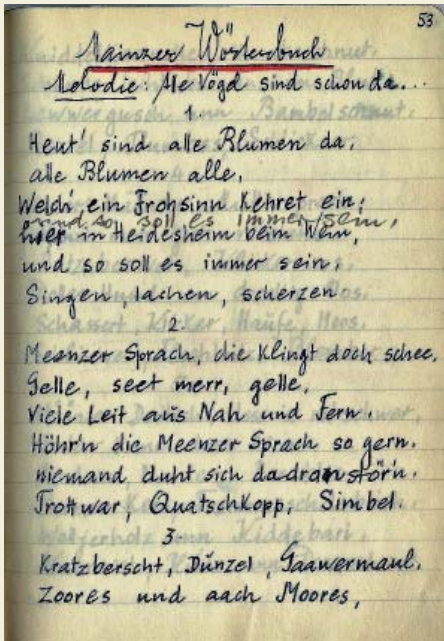 53
Mainzer Wörterbuch
Melodie: Alle Vögel sind schon da...
1
Heut' sind alle Blumen da,
alle Blumen alle,
Welch' ein Frohsinn Kehret ein;
und so soll es immer sein,
hier in Heidesheim beim Wein,
und so soll es immer sein;
Singen, lachen, scherzen
2
Meenzer Sprach, die Klingt doch schee,
Gelle, seet merr, gelle,
Viele Leit aus Nah und Fern.
Höhr'n die Meenzer Sprach so gern.
niemand duht sich dadran störn.
Trottwar, Quatschkopp, Simbel.
3
Kratzberscht, Dünzel, Gaawermaul.
Zoores und aach Moores,